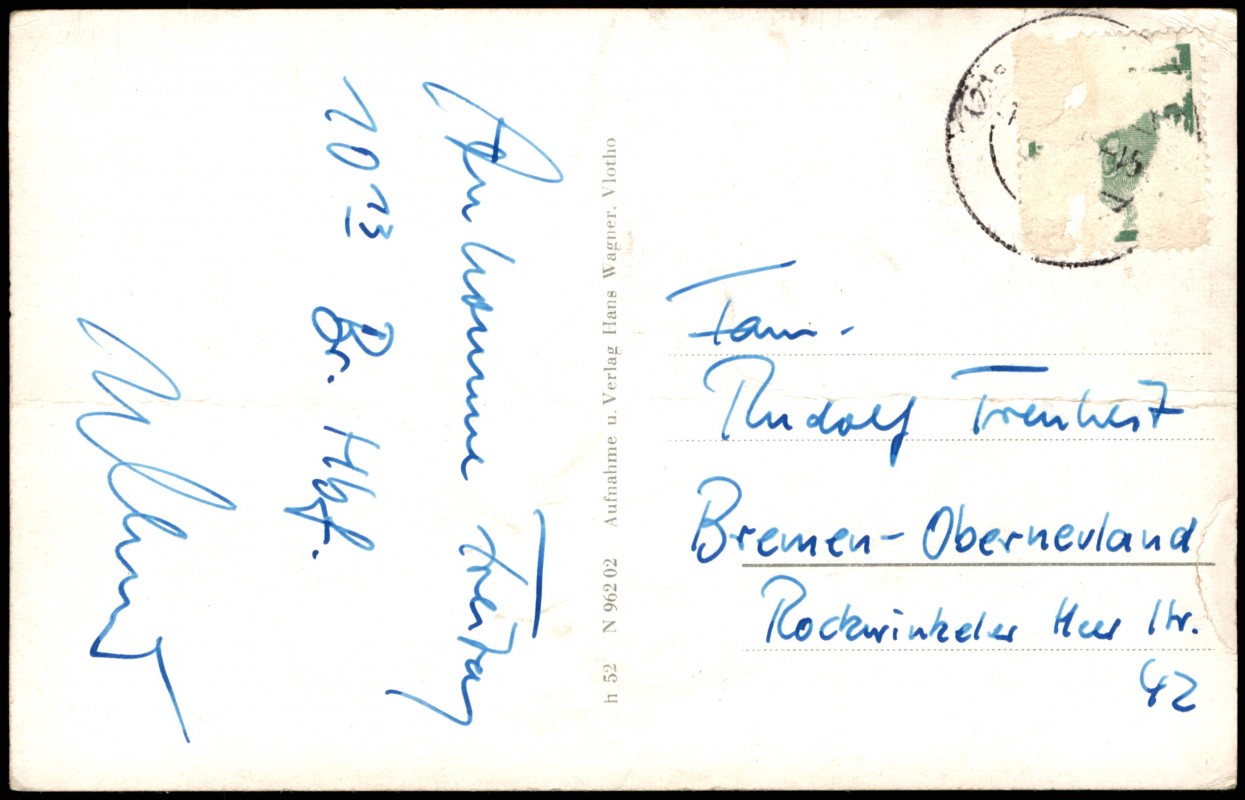 Ankomme Freitag
10 13 Br. Hbf.
h 52 N 962 02 Aufnahme u. Verlag Hans Wagner, Vlotho
Fam.
Rudolf
Bremen-Oberneuland
Rockwinkeler Heer Str.
42